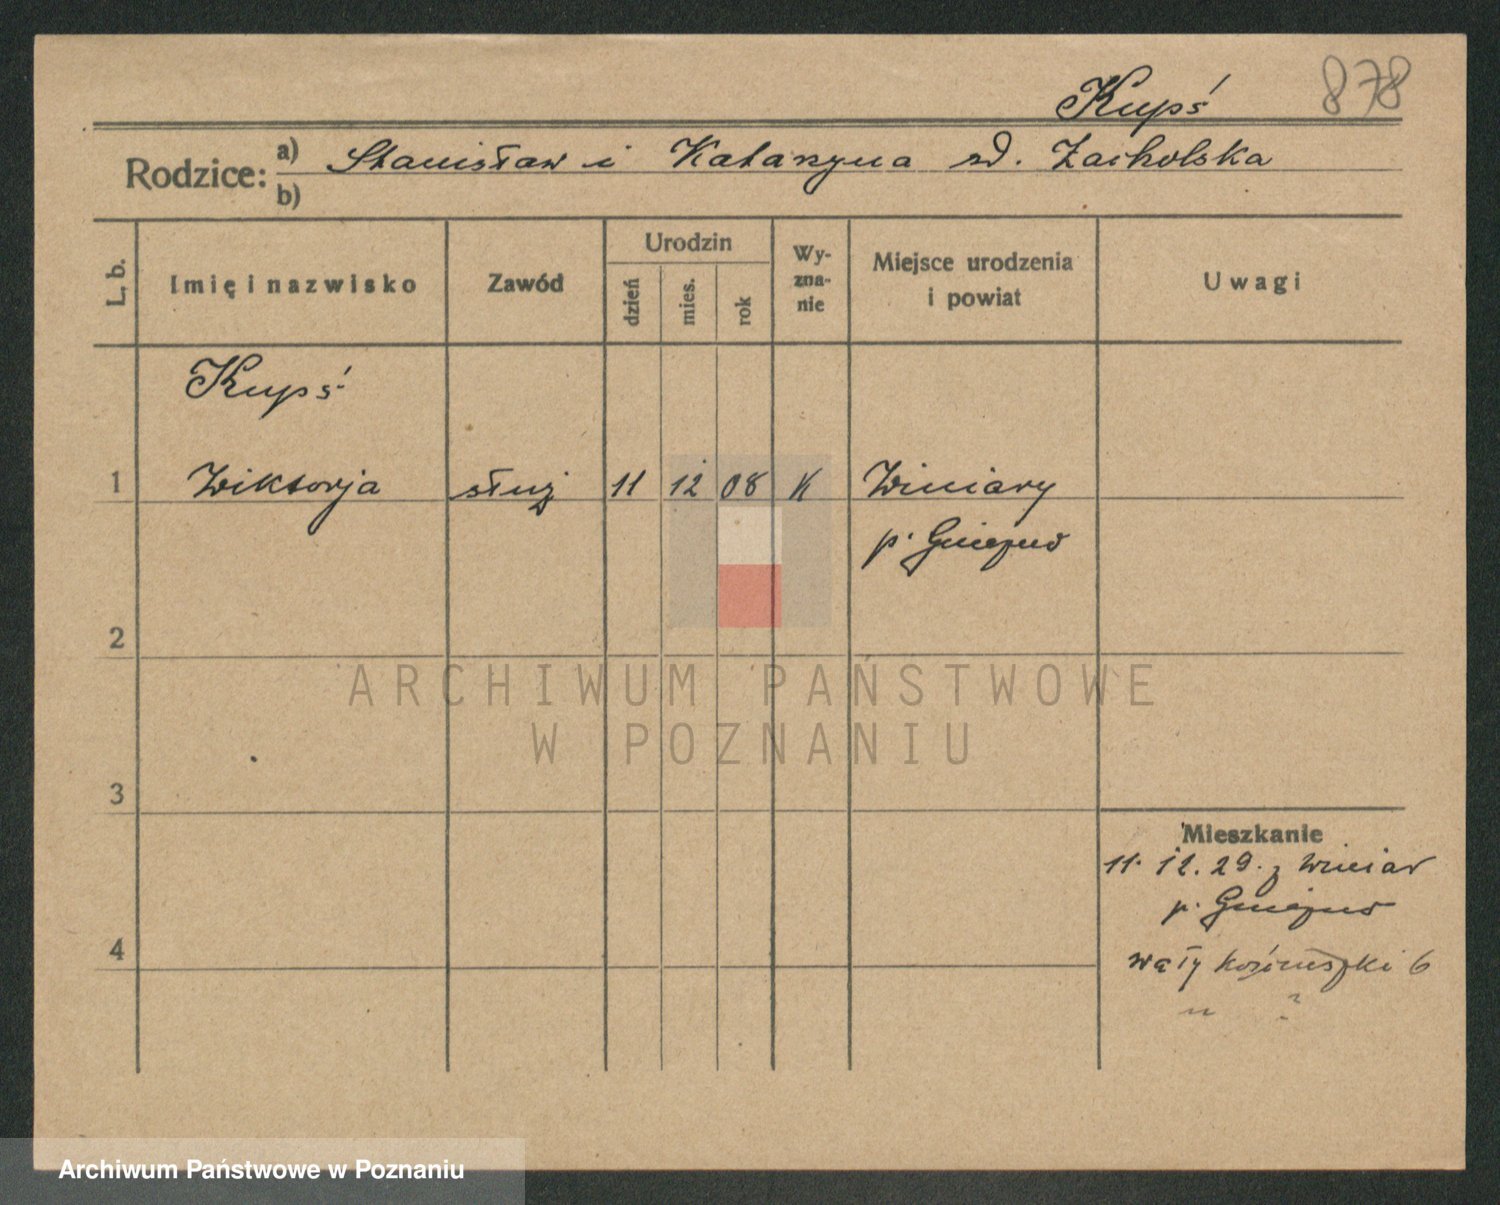 Kupś 878
Rodzice: a) Stanisław i Katarzyna zd. Zacholska
b)
L. b. Imię i nazwisko Zawód Urodzin dzień mies. rok Wy-zna-nie Miejsce urodzenia i powiat Uwagi
Kupś
1 Wiktorja służ 11 12 08 K Winiary
p. Gniezno
2
ARCHIWUM PAŃSTWOWE
W POZNANIU
3
Mieszkanie
11. 12. 29. z Winiar
p. Gniezno
4 Wały 6
" ?
Archiwum Państwowe w Poznaniu